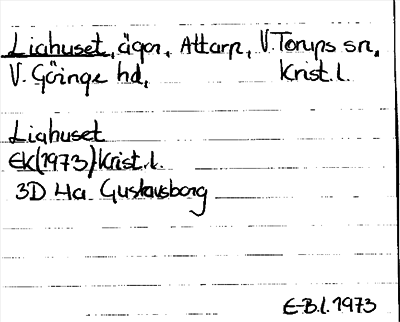 Liahuset, ägor, Attarp, V. Torups sn,
V. Göinge hd, Krist. l.
Liahuset
Ek(1973) Krist. l.
3D 4a Gustavsborg
E-B.l. 1973